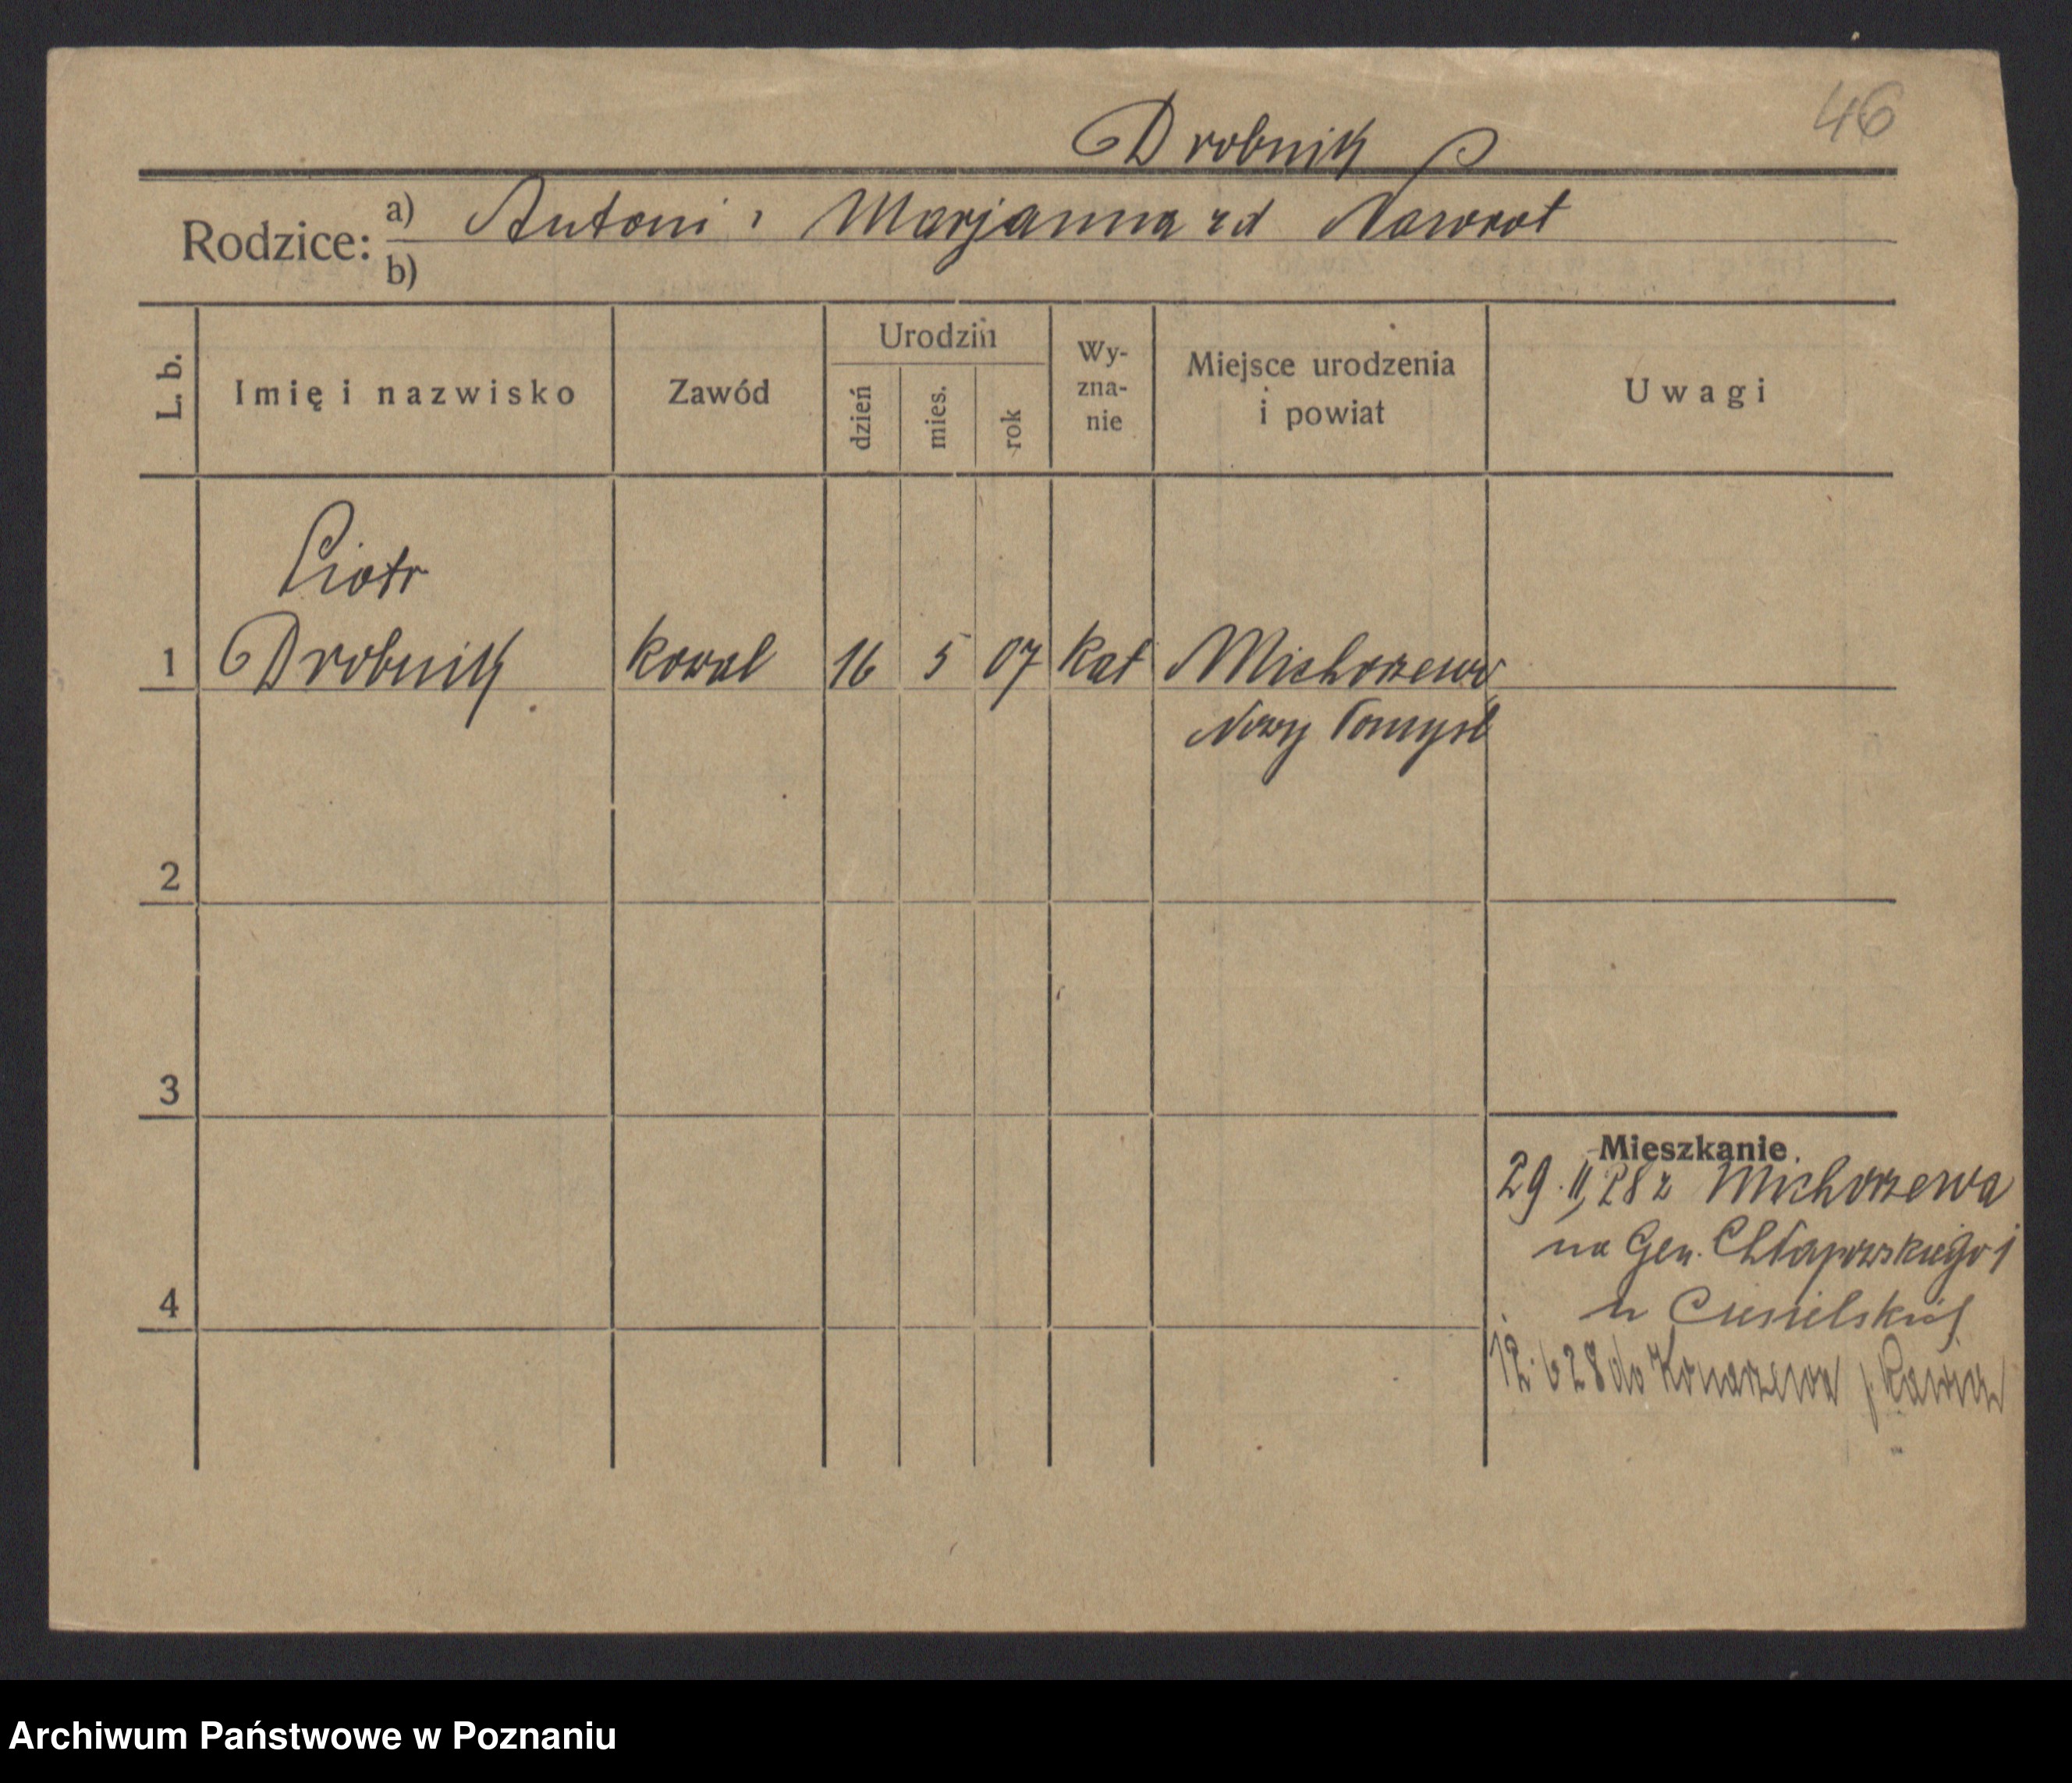 46
Drobnik P
Rodzice: a) Antoni i Marjanna zd Nawrot
b)
L. b.
Imię i nazwisko
Zawód
Urodzin
dzień
mies.
rok
Wy-
zna-
nie
Miejsce urodzenia
i powiat
Uwagi
Piotr
1 Drobnik kowal 16 5 07 kat Michorzewo
Nowy Tomyśl
2
3
Mieszkanie.
29.II.28 z Michorzewa
na Gen. Chłapowskiego 1
u
4
12.6 28 do Konarzewa p. Rawicz
Archiwum Państwowe w Poznaniu